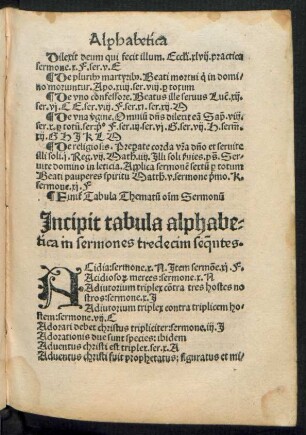 Alphabetica
Dilexit deum qui fecit illum. Eccli. xlvij. practica
sermone. x. F. ser. v. E
¶ De pluribꝰ martyribꝰ. Beati mortui q̄ in domi
no moriuntur. Apo. xiiij. ser. viij. p totum
¶ De vno confessore. Beatus ille seruus Luc̄. xij.
ser. vj. C E. ser. vij. F. ser. xj. ser. xij. M
¶ De vna v̄gine. Omniū dn̄s dilexit eā Sap̄. viij.
ser. x. p totū. ser. F ser. iij. ser. vj. G. ser. vij. H. serm̄.
xij. G H I K L M
¶ De religiosis. Prepate corda vr̄a dn̄o et seruite
illi soli. j. Reg. vij. Math. iiij. Illi soli ẜuies. ps̄. Ser
uite domino in leticia. Applica sermonē sextū p totum
Beati pauperes spiritu Matth. v. sermone pmo. K.
sermone. xj. F
¶ Finit Tabula Thematū oīm Sermonū
Incipit tabula alphabe-
tica in sermones tredecim seq̄ntes.
ACidia: sermone. x. N. Jtem sermōe. xj. F.
Acidiosoꝝ merces: sermone. x. N
Adiutorium triplex cōtra tres hostes no
stros: sermone. x. J
Adiutorium triplex contra triplicem ho
stem: sermone. vij. C
Adorari debet christus tripliciter: sermone. iij. J
Adorationis due sunt species: ibidem
Aduentus christi est triplex. ser. x. A
Aduentus christi fuit prophetatus: figuratus et mi